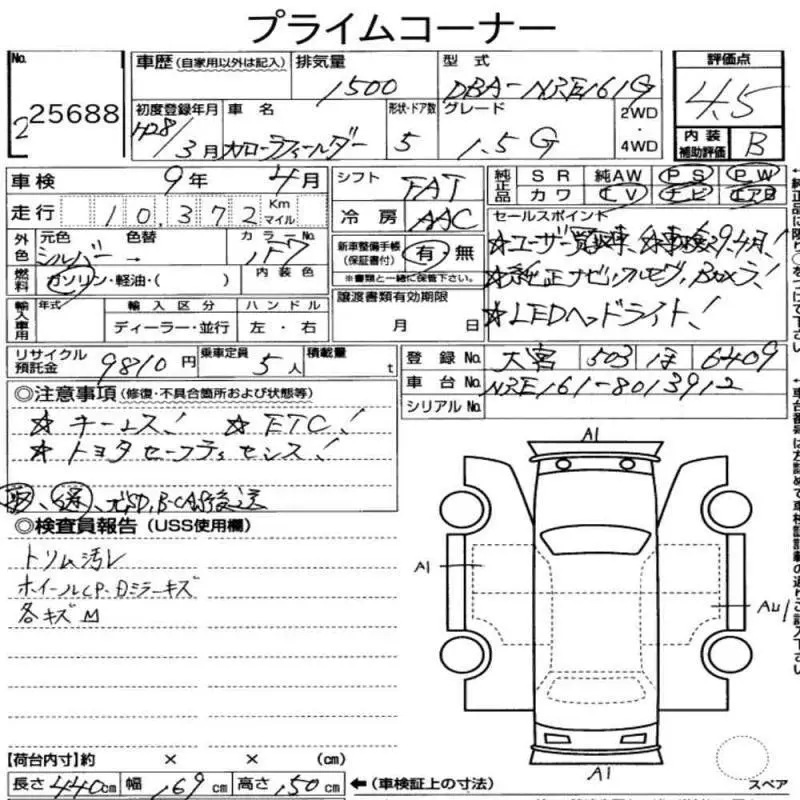 プライムコーナー
No. 2 25688
車歴 (自家用以外は記入) 排気量 1500 型式 DBA-NRE161G 評価点 4.5
初度登録年月 H28/3月 車名 カローラフィールダー 形状・ドア数 5 グレード 1.5G 2WD・4WD 内装補助評価 B
車検 9年 4月 シフト FAT 純正品 SR 純AW PS PW
カワ TV ナビ エアB
走行 10,372 Km マイル 冷房 AAC セールスポイント
外色 元色 シルバー 色替 → カラーNo. 1F7 新車整備手帳 (保証書付) 有・無 ☆ユーザー買取車、
※書類と一緒に保管下さい。
燃料 ガソリン・軽油・( ) 内装色 ☆純正ナビ、フルセグ、Bカメラ!
輸入車用 年式 輸入区分 ハンドル 譲渡書類有効期限 ☆LEDヘッドライト!
ディーラー・並行 左・右 月 日
リサイクル預託金 9810円 乗車定員 5人 積載量 t 登録No. 大宮 503 6409
車台No. NRE161-8013912
シリアルNo.
◎注意事項 (修復・不具合箇所および状態等)
☆キーレス! ☆ETC!
☆トヨタセーフティセンス!
取、
◎検査員報告 (USS使用欄)
トリム汚レ
ホイールCP・Dミラーキズ
各キズ M
A1
A1
AU1
A1
【荷台内寸】約 × × (cm)
長さ 440cm 幅 169cm 高さ 150cm ←(車検証上の寸法) スペア